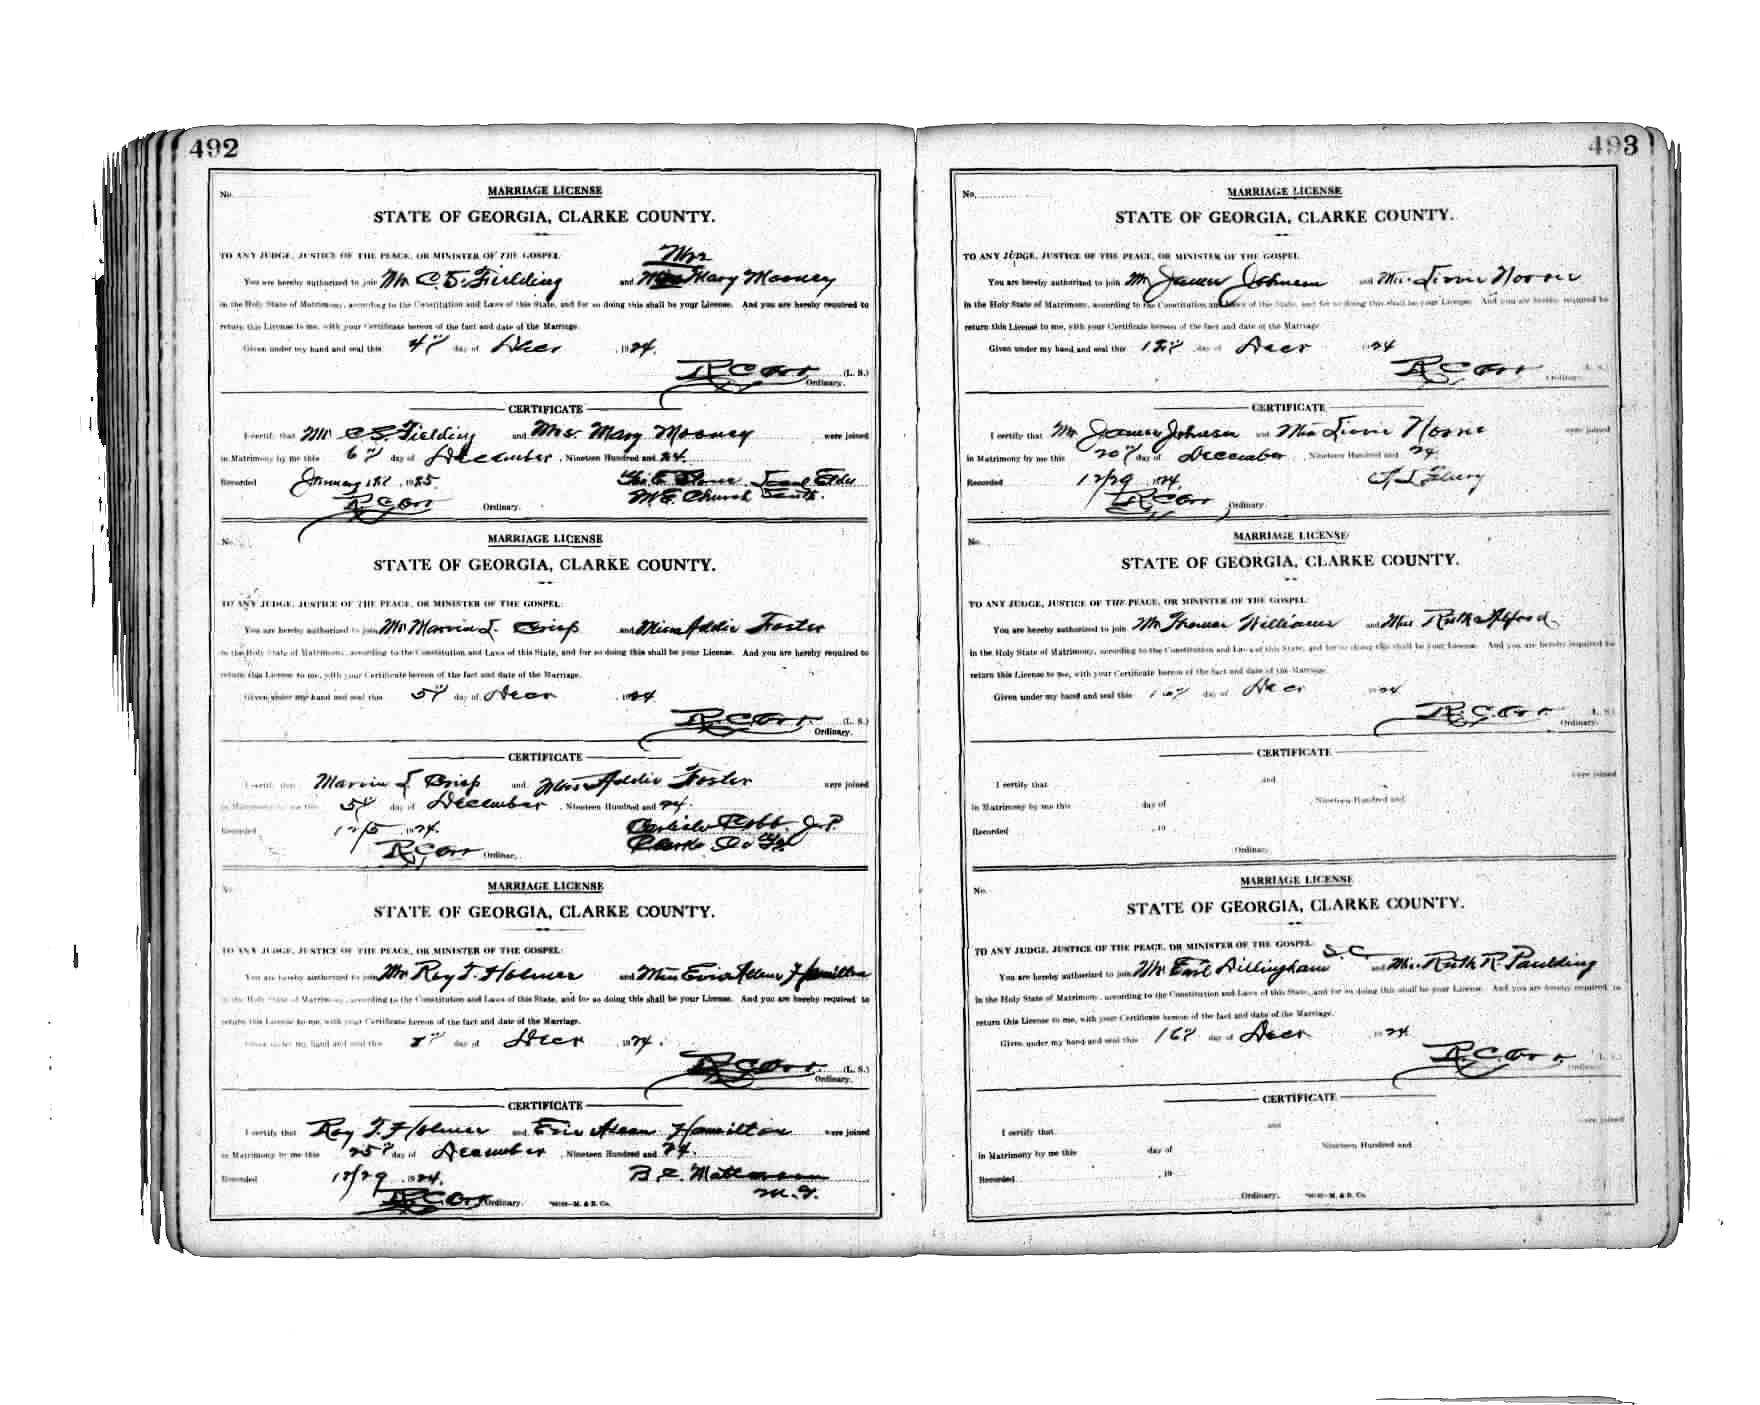 492
No.
MARRIAGE LICENSE
STATE OF GEORGIA, CLARKE COUNTY.
TO ANY JUDGE, JUSTICE OF THE PEACE, OR MINISTER OF THE GOSPEL:
Mrs
You are hereby authorized to join Mr. C. S. Fielding and Mary Mooney
in the Holy State of Matrimony, according to the Constitution and Laws of this State, and for so doing this shall be your License. And you are hereby required to
return this License to me, with your Certificate hereon of the fact and date of the Marriage.
Given under my hand and seal this 4th day of Decr , 1924.
R C Orr (L. S.)
Ordinary.
CERTIFICATE
I certify that Mr. C S. Fielding and Mrs. Mary Mooney were joined
in Matrimony by me this 6th day of December, Nineteen Hundred and 24.
Recorded January 1st, 1925. Elder
R C Orr Ordinary. M. E. Church South.
No.
MARRIAGE LICENSE
STATE OF GEORGIA, CLARKE COUNTY.
TO ANY JUDGE, JUSTICE OF THE PEACE, OR MINISTER OF THE GOSPEL:
You are hereby authorized to join Mr Marvin L. Crisp and Miss Addie Foster
in the Holy State of Matrimony, according to the Constitution and Laws of this State, and for so doing this shall be your License. And you are hereby required to
return this License to me, with your Certificate hereon of the fact and date of the Marriage.
Given under my hand and seal this 5th day of Decr 1924
R. C. Orr. (L. S.)
Ordinary.
CERTIFICATE
I certify that Marvin L Crisp and Miss Addie Foster were joined
in Matrimony by me this 5th day of December, Nineteen Hundred and 24.
Recorded 12/5 1924. Carlisle Cobb. J. P.
R C Orr Ordinary. Clarke Co Ga
No.
MARRIAGE LICENSE
STATE OF GEORGIA, CLARKE COUNTY.
TO ANY JUDGE, JUSTICE OF THE PEACE, OR MINISTER OF THE GOSPEL:
You are hereby authorized to join Mr Roy T. Holmes and Miss Hamilton
in the Holy State of Matrimony, according to the Constitution and Laws of this State, and for so doing this shall be your License. And you are hereby required to
return this License to me, with your Certificate hereon of the fact and date of the Marriage.
Given under my hand and seal this 8th day of Decr 1924.
R C Orr. (L. S.)
Ordinary.
CERTIFICATE
I certify that Roy T. Holmes and Hamilton were joined
in Matrimony by me this 25th day of December, Nineteen Hundred and 24.
Recorded 12/29 1924. B. E.
R C Orr Ordinary. M. & B. Co. M. G.
493
No.
MARRIAGE LICENSE
STATE OF GEORGIA, CLARKE COUNTY.
TO ANY JUDGE, JUSTICE OF THE PEACE, OR MINISTER OF THE GOSPEL
You are hereby authorized to join Mr James Johnson and Miss
in the Holy State of Matrimony, according to the Constitution and Laws of this State, and for so doing this shall be your License. And you are hereby required to
return this License to me, with your Certificate hereon of the fact and date of the Marriage
Given under my hand and seal this day of Decr 1924
R C Orr (L. S.)
Ordinary.
CERTIFICATE
I certify that Mr James Johnson and Miss were joined
in Matrimony by me this 20th day of December, Nineteen Hundred and 24.
Recorded 12/29 1924.
R C Orr Ordinary.
No.
MARRIAGE LICENSE
STATE OF GEORGIA, CLARKE COUNTY.
TO ANY JUDGE, JUSTICE OF THE PEACE, OR MINISTER OF THE GOSPEL:
You are hereby authorized to join Mr Thomas Williams and Miss Ruth Alford
in the Holy State of Matrimony, according to the Constitution and Laws of this State, and for so doing this shall be your License. And you are hereby required to
return this License to me, with your Certificate hereon of the fact and date of the Marriage
Given under my hand and seal this 16th day of Decr 1924
R. C. Orr. (L. S.)
Ordinary.
CERTIFICATE
I certify that and were joined
in Matrimony by me this day of , Nineteen Hundred and
Recorded , 19
Ordinary.
No.
MARRIAGE LICENSE
STATE OF GEORGIA, CLARKE COUNTY.
TO ANY JUDGE, JUSTICE OF THE PEACE, OR MINISTER OF THE GOSPEL: S. C.
You are hereby authorized to join Mr Earl Dillingham and Miss Ruth R. Paulding
in the Holy State of Matrimony, according to the Constitution and Laws of this State, and for so doing this shall be your License. And you are hereby required to
return this License to me, with your Certificate hereon of the fact and date of the Marriage.
Given under my hand and seal this 16th day of Decr 1924
R. C. Orr. (L. S.)
Ordinary.
CERTIFICATE
I certify that and were joined
in Matrimony by me this day of Nineteen Hundred and
Recorded , 19
Ordinary. M. & B. Co.